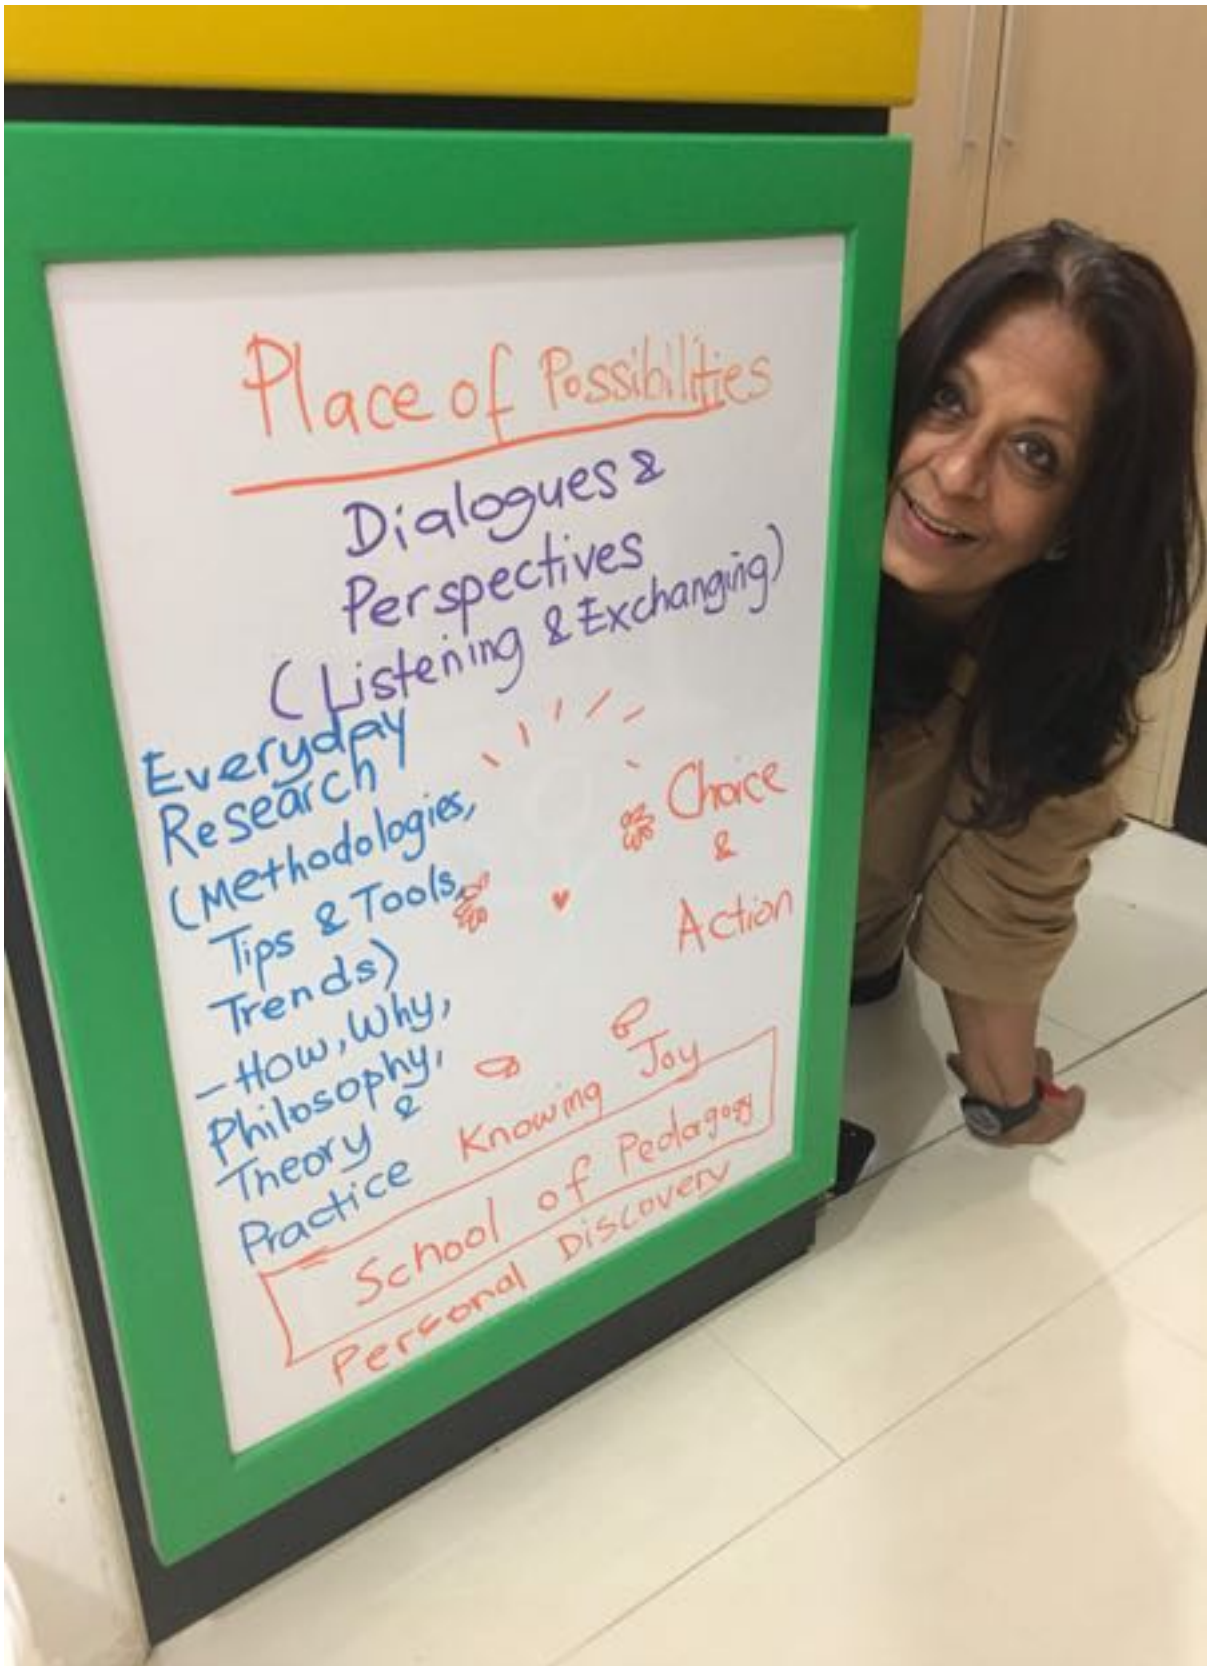 Place of Possibilities
Dialogues &
Perspectives
(Listening & Exchanging)
Everyday
Research
(Methodologies,
Tips & Tools,
Trends)
- How, Why,
Philosophy,
Theory &
Practice
Choice
&
Action
Knowing Joy
School of Pedagogy
Personal Discovery